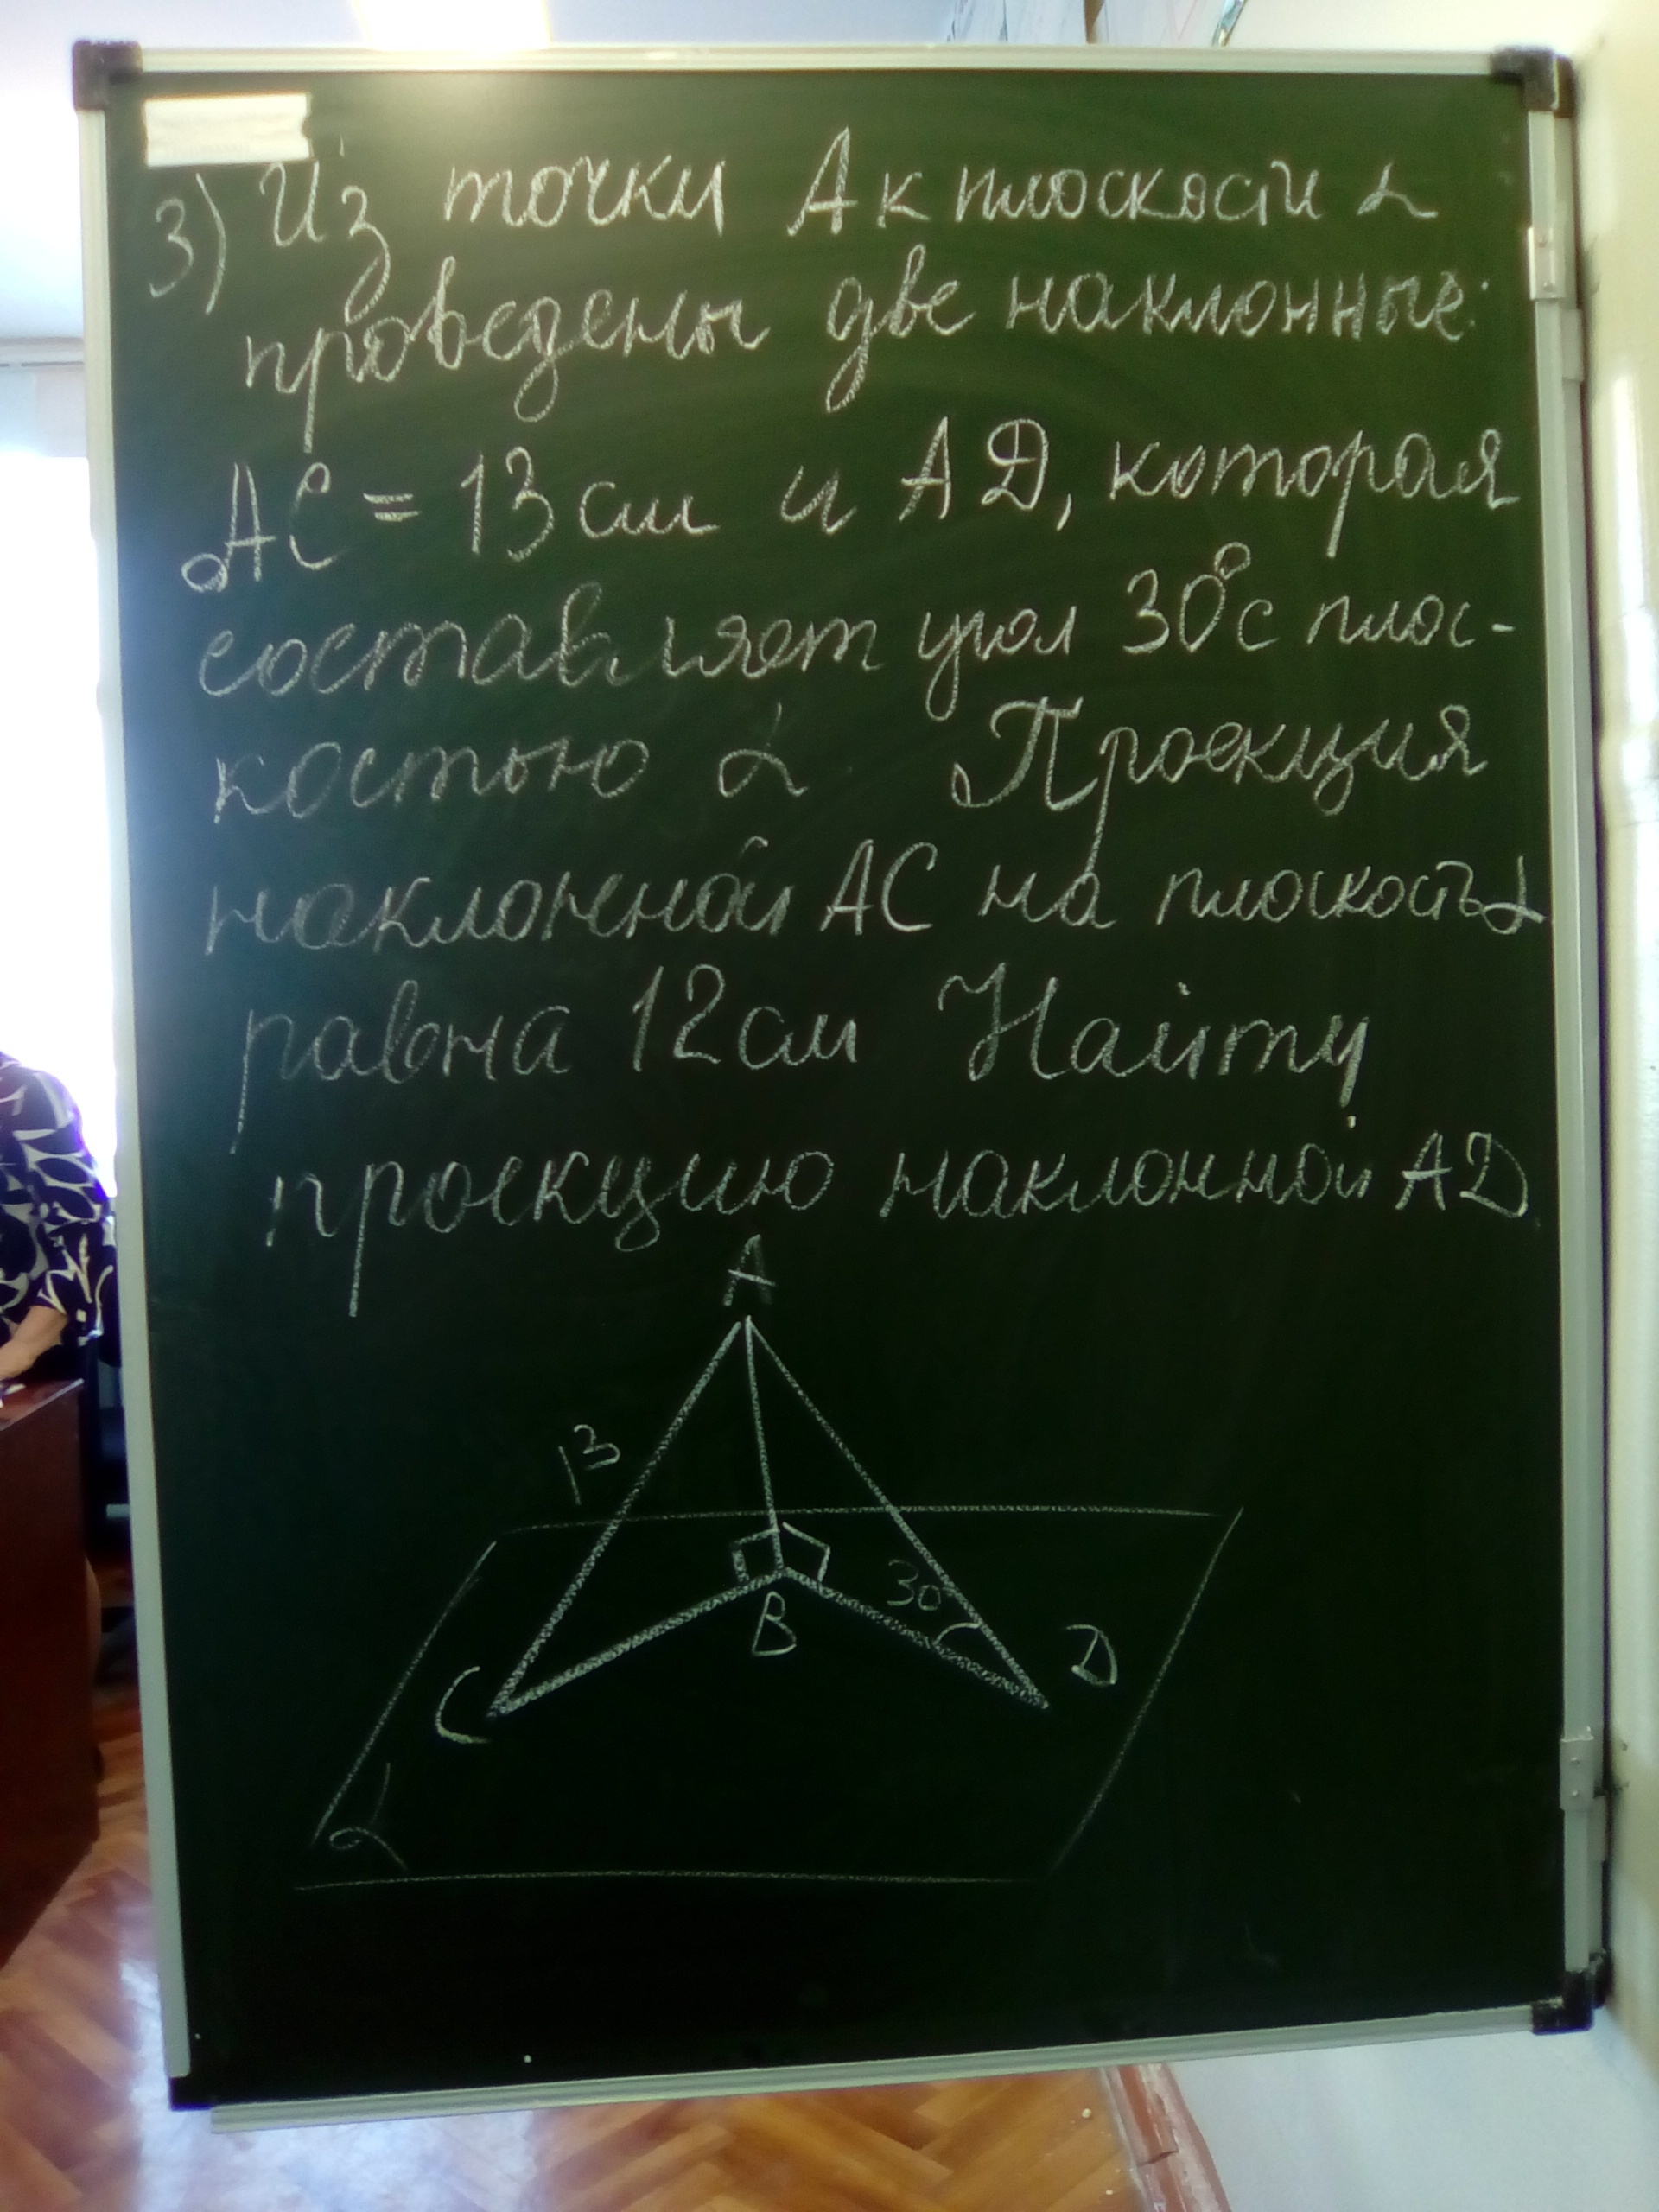 3) Из точки А к плоскости α
проведены две наклонные:
АС = 13 см и АД, которая
составляет угол 30° с плос-
костью α Проекция
наклонной АС на плоскость α
равна 12 см Найти
проекцию наклонной АД
А
13
30
В
С
D
α